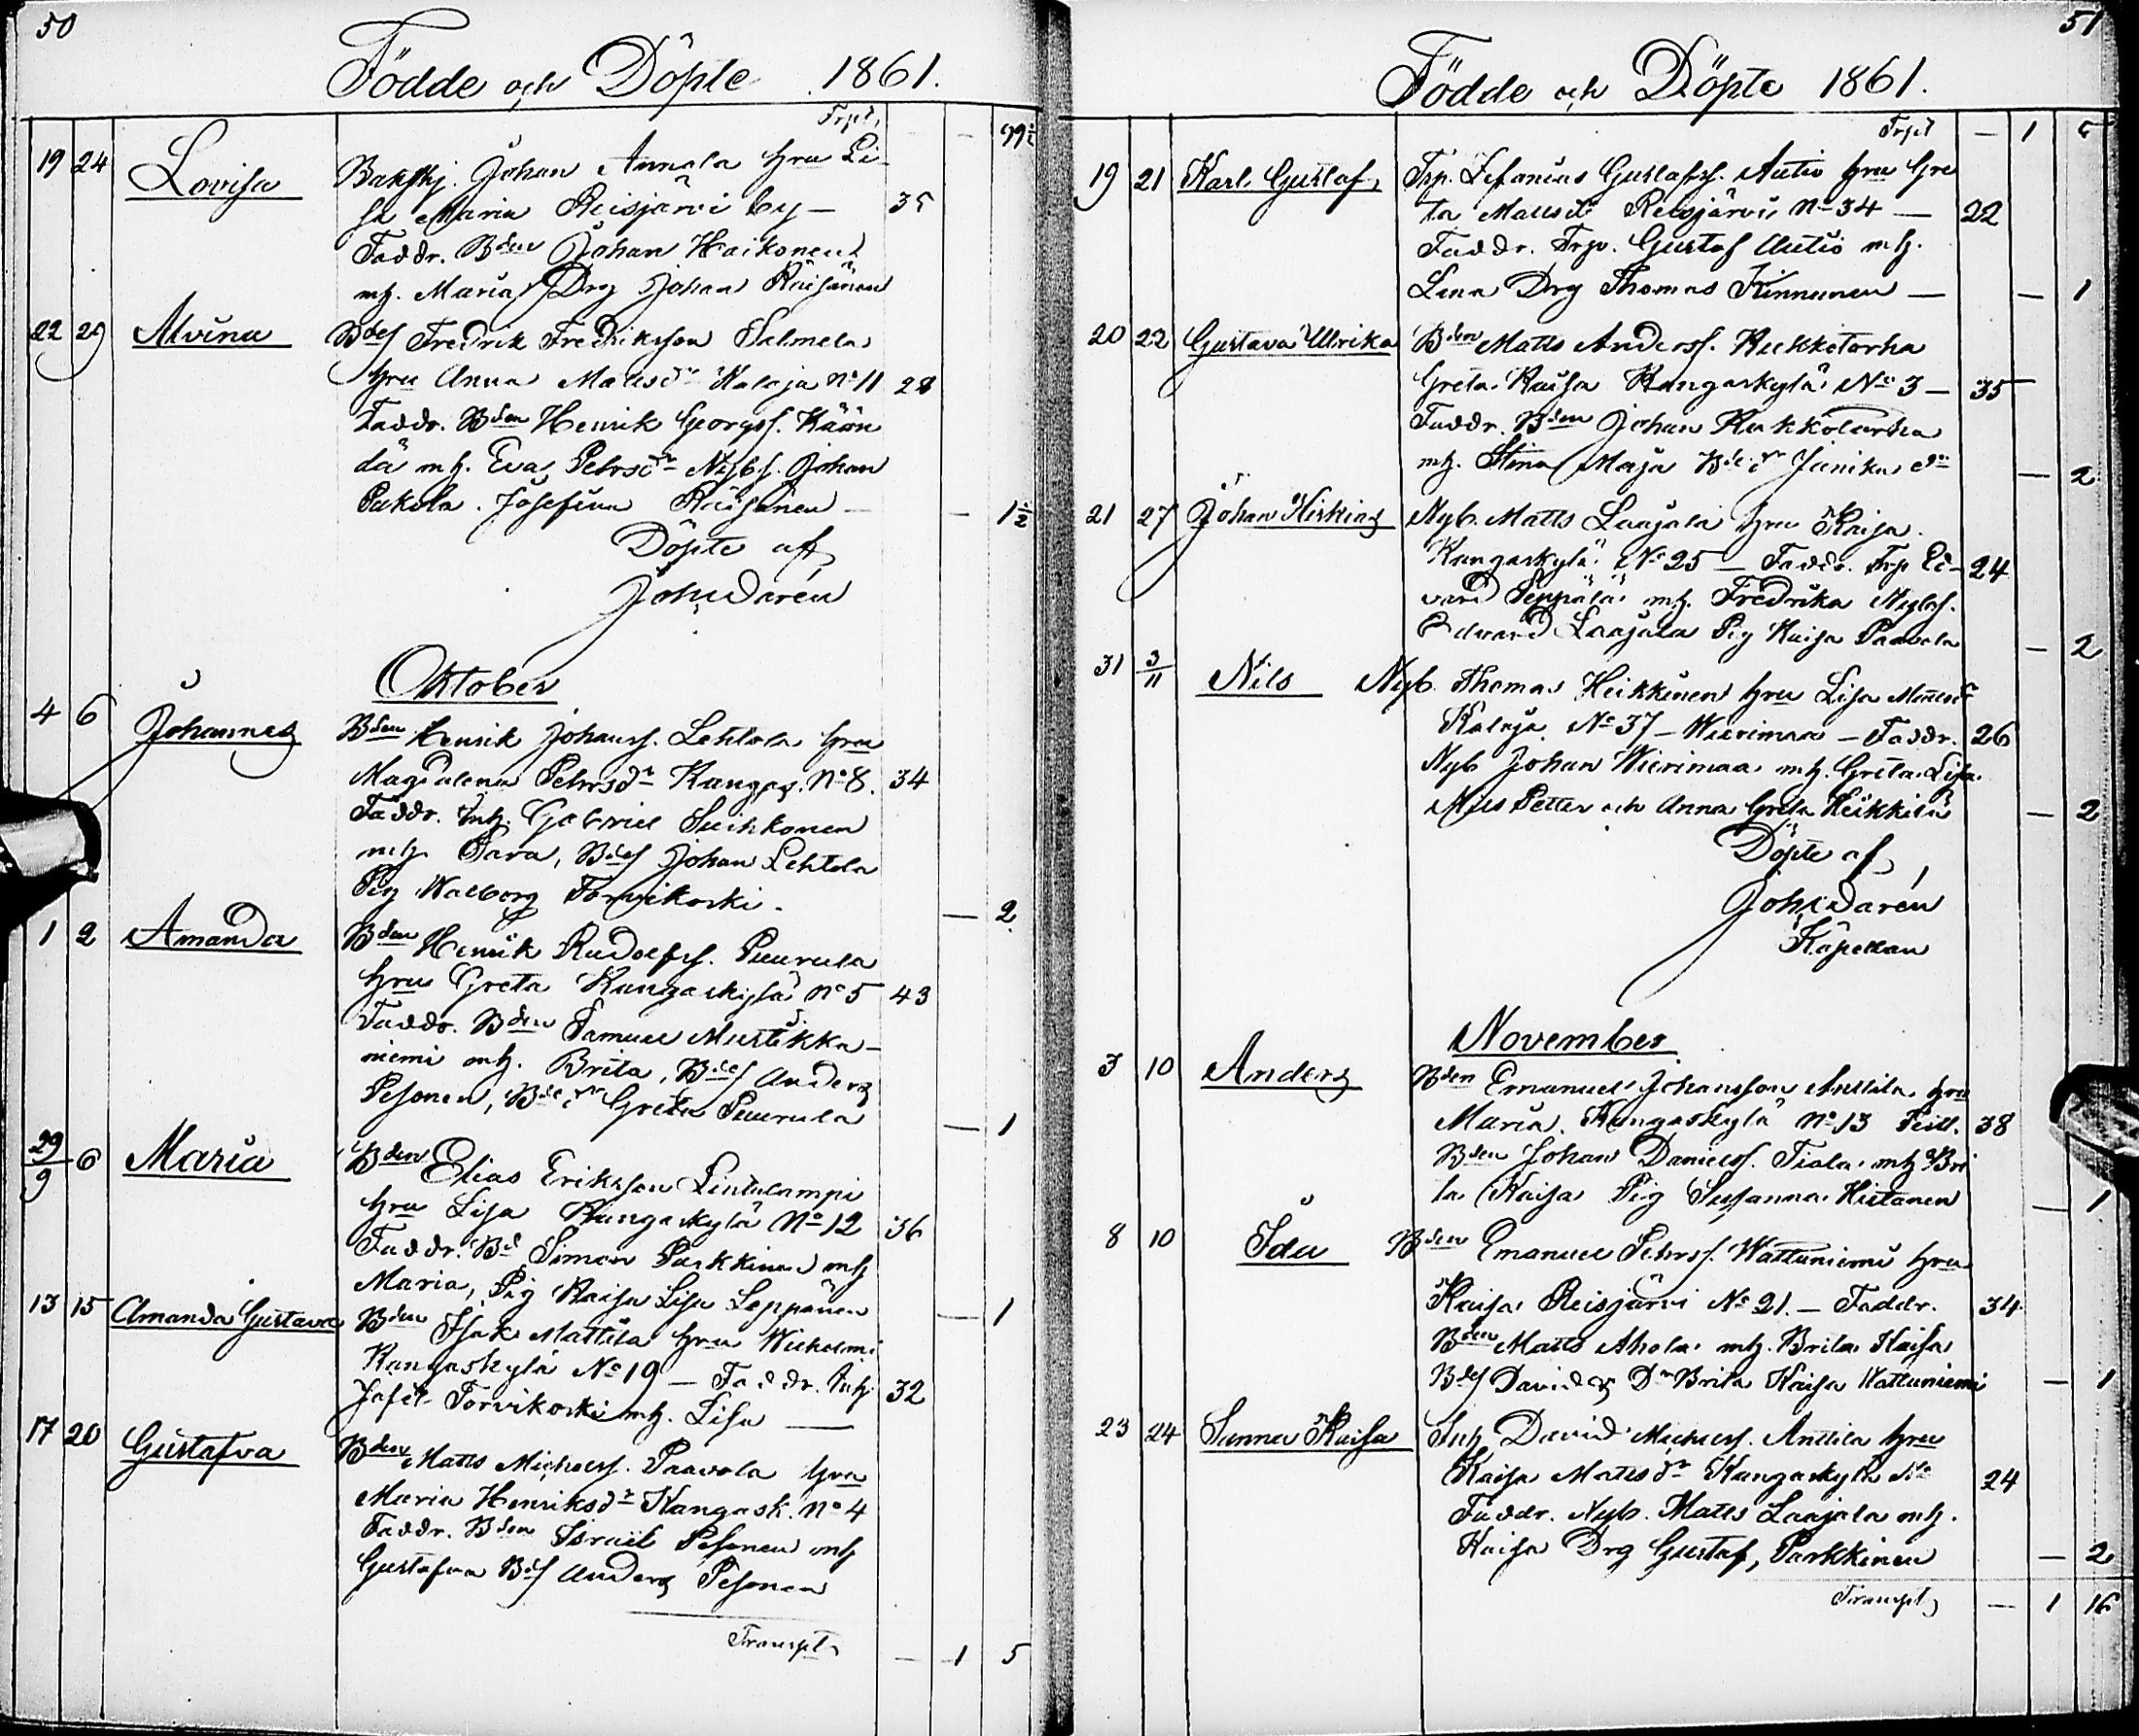 50
Födde och Döpte 1861.
Trpt, — 99½
19 24 Lovisa Bakstkj. Johan Annala hru Li-
sa Maria Reisjärvi by — 35
Faddr. Bden Johan Haikonen
mh. Maria, Drg Johan Räisänen
22 29 Alvina Bdes Fredrik Fredriksson Salmela
hru Anna Mattsdr Kalaja No 11 28
Faddr. Bden Henrik Georgss. Kään
tä mh. Eva Pehrsdr Nybs. Johan
Pakola. Josefina Räisänen — — 1½
Döpte af
Joh. Darén
Oktober
4 6 Johannes Bden Henrik Johanss. Lehtola hru
Magdalena Pehrsdr Kangas. No 8. 34
Faddr. Inh. Gabriel Suihkonen
mh. Sara, Bdes Johan Lehtola
Pig Walborg Torvikoski. — 2
1 2 Amanda Bden Henrik Rudolfss. Puurula
hru Greta Kangaskylä No 5 43
Faddr. Bden Samuel Mustikka-
niemi mh. Brita, Bdes Anders
Pesonen, Bdedr Greta Puurula — 1
29/9 6 Maria Bden Elias Eriksson Lintulampi
hru Lisa Kangaskylä No 12 36
Faddr. Bd Simon Parkkinen mh
Maria, Pig Kaisa Lisa Leppänen — 1
13 15 Amanda Gustava Bden Isak Mattila hru Wilhelmi
Kangaskylä No 19 — Faddr. Inh. 32
Jafet Torvikoski mh. Lisa —
17 20 Gustafva Bden Matts Michelss. Paavola hru
Maria Henriksdr Kangask. No 4
Faddr. Bden Israel Pesonen mh
Gustafva Bds Anders Pesonen
Transpt, — 1 5
51
Födde och Döpte 1861.
Trpt — 1 5
19 21 Karl Gustaf, Trp. Zefanias Gustafss. Autio hru Gre
ta Mattsdr Reisjärvi No 34 — 22
Faddr. Trp. Gustaf Autio mh.
Lena Drg Thomas Kinnunen — — 1
20 22 Gustava Ulrika Bden Matts Anderss. Kukkotarha
Greta Kaisa Kangaskylä No 3 — 35
Faddr. Bden Johan Kukkotarha
mh. Stina Maja Bdedr — 2
21 27 Johan Hiskias Nyb. Matts Laajala hru Kaisa
Kangaskylä No 25 — Faddr. Trp Ed- 24
vard Seppälä mh. Fredrika Nybs.
Edvard Laajala Pig Kaisa Paavola — 2
31 3/11 Nils Nyb. Thomas Heikkinen hru Lisa Mattsdr
Kalaja No 37 — Wierimaa — Faddr. 26
Nyb Johan Wierimaa mh. Greta Lisa
Nils Petter och Anna Greta Heikkilä — 2
Döpte af
Joh. Darén
Kapellan
November
3 10 Anders Bden Emanuel Johansson Anttila hru
Maria. Kangaskylä No 13 38
Bden Johan Danielss. Tiala mh Bri
ta Kaisa Pig Susanna Hietanen — 1
8 10 Ida Bden Emanuel Pehrss. Wattuniemi hru
Kaisa Reisjärvi No 21. — Faddr. 34
Bden Matts Ahola mh. Brita Kaisa
Bds David & Dr Brita Kaisa Wattuniemi — 1
23 24 Sanna Kaisa Inh David Michelss. Anttila hru
Kaisa Mattsdr Kangaskylä No 24
Faddr. Nyb. Matts Laajala mh.
Kaisa Drg Gustaf, Parkkinen — 2
Transpt, — 1 16